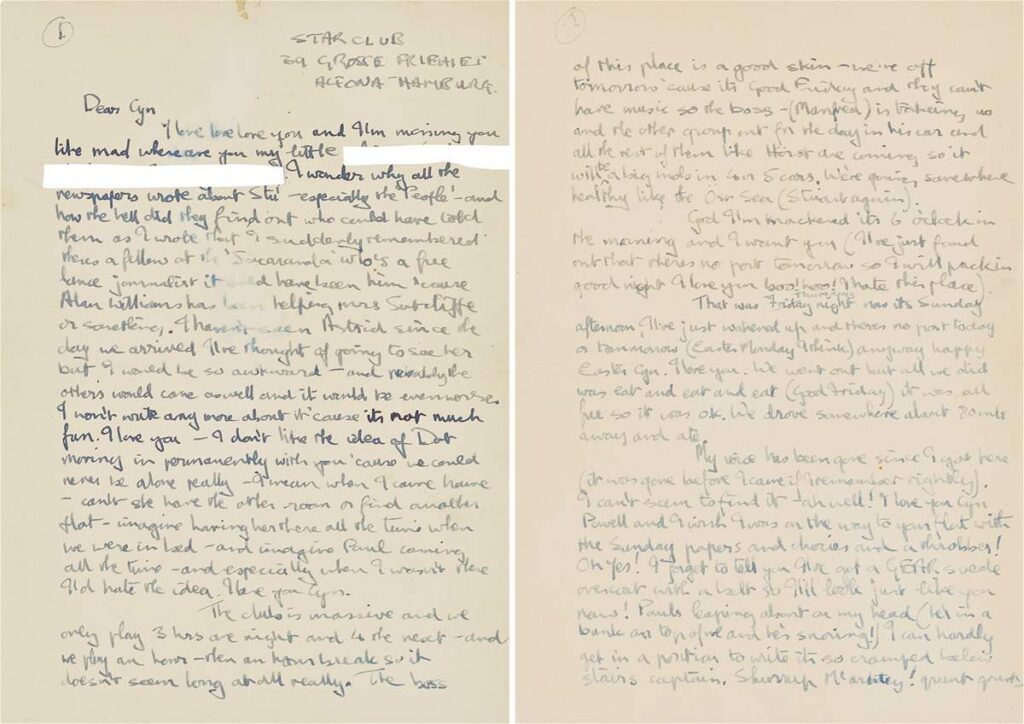 1.
STAR CLUB
39 GROSSE FRIEHIET
ALTONA-HAMBURG.
Dear Cyn
I love love love you and I'm missing you
like mad where are you my little
I wonder why all the
newspapers wrote about Stu - especially the 'People' - and
how the hell did they find out who could have told
them as I wrote that I suddenly remembered
theres a fellow at the 'Jacaranda' who's a free
lance journalist it could have been him 'cause
Alan Williams has been helping mrs Sutcliffe
or something. I haven't seen Astrid since the
day we arrived I've thought of going to see her
but I would be so awkward - and probably the
others would come aswell and it would be even worse.
I won't write any more about it 'cause its not much
fun. I love you - I don't like the idea of Dot
moving in permanently with you 'cause we could
never be alone really - I mean when I come home
- can't she have the other room or find another
flat - imagine having her there all the time when
we were in bed - and imagine Paul coming
all the time - and especially when I wasn't there
I'd hate the idea. I love you Cyn.
The club is massive and we
only play 3 hrs one night and 4 the next - and
we play an hour - then an hours break so it
doesn't seem long at all really. The boss
2
of this place is a good skin - we're off
tomorrow 'cause its Good Friday and they can't
have music so the boss - (Manfred) is taking us
and the other group out for the day in his car and
all the rest of them like Horst are coming so it
will be a big mob in 4 or 5 cars. We're going somewhere
healthy like the Ost Sea (Stuart again).
God I'm knackered its 6 o'clock in
the morning and I want you (I've just found
out that theres no post tomorrow so I will pack in
good night I love you boo! hoo! I hate this place)
That was Friday night now its Sunday
afternoon, I've just wakened up and theres no post today
or tommorow (Easter Monday I think) anyway happy
Easter Cyn. I love you. We went out but all we did
was eat and eat and eat (Good Friday) it was all
free so it was ok. We drove somewhere about 80 mls
away and ate.
My voice has been gone since I got here
(it was gone before I came if I remember rightly).
I can't seem to find it - ah well! I love you Cyn
Powell and I wish I was on the way to your flat with
the Sunday papers and chocies and a throbber!
Oh Yes! I forgot to tell you I've got a GEAR suede
overcoat with a belt so I'll look just like you
now! Pauls leaping about on my head (he's in a
bunk on top of me and he's snoring!) I can hardly
get in a position to write its so cramped below
stairs captain. Shurrup Mcartney! grunt grunt